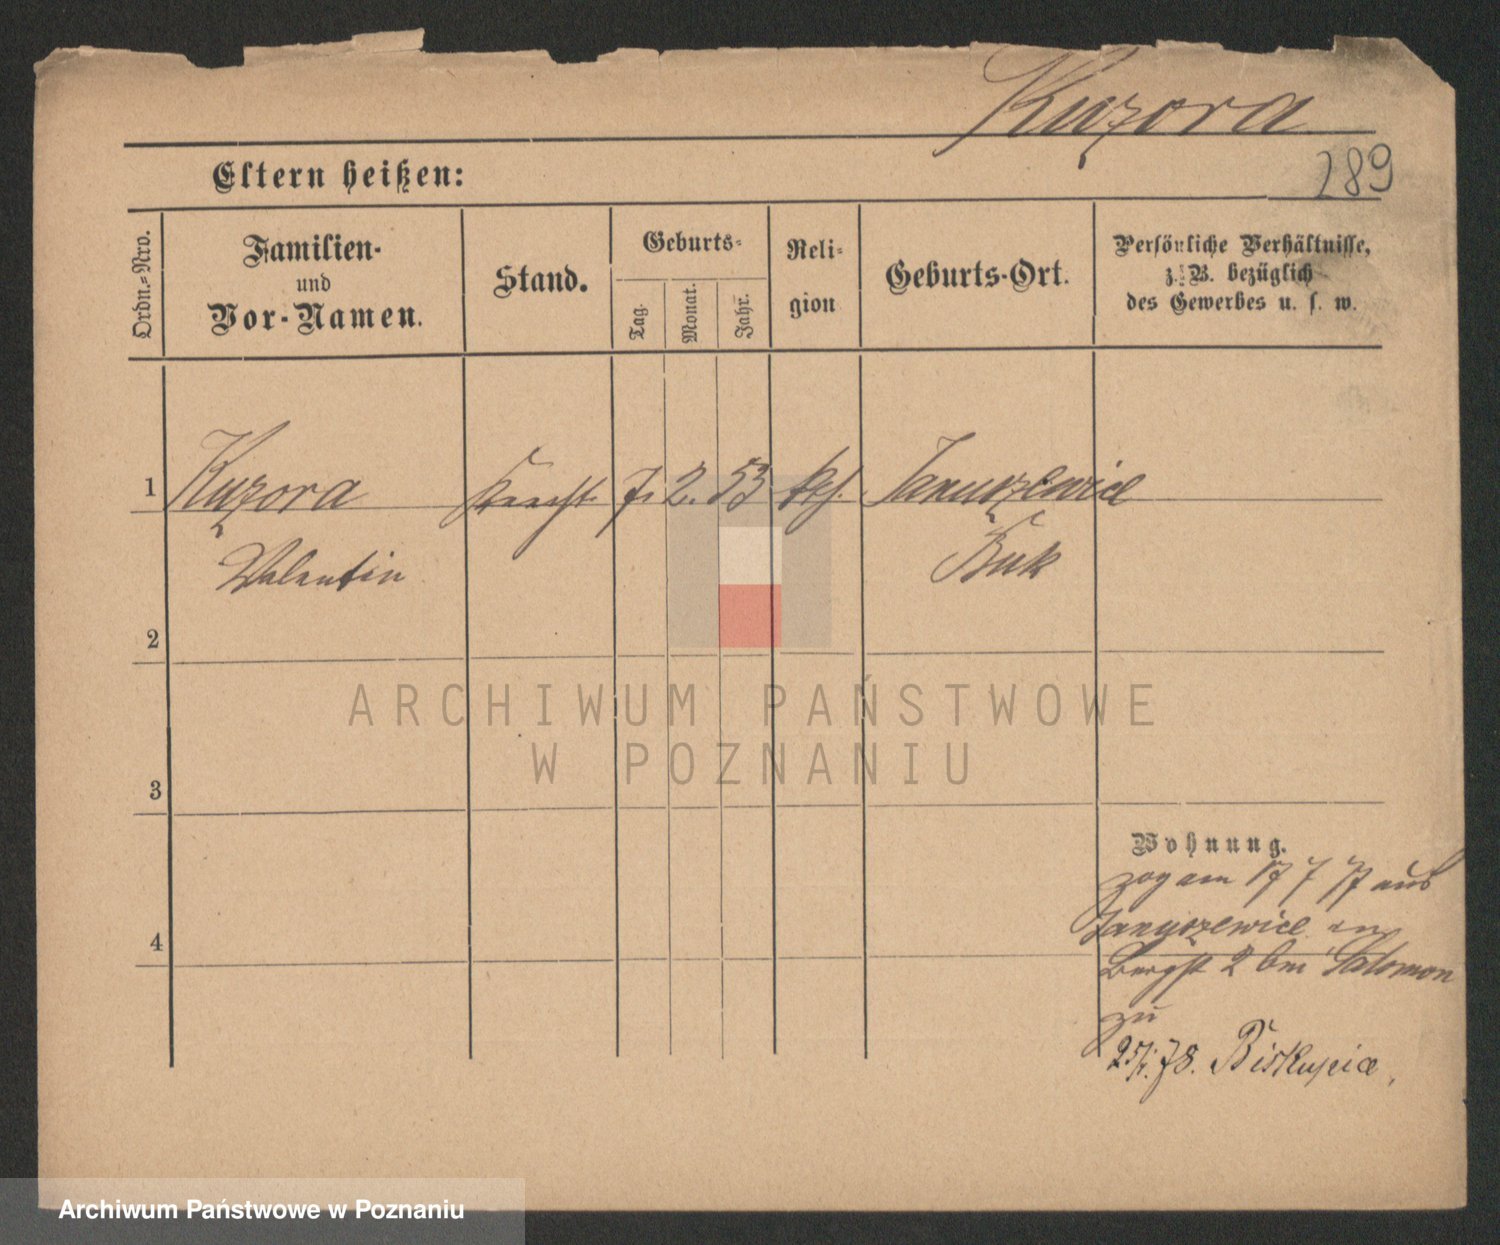 Kuzora
289
Eltern heißen:
Ordn.-Nro.
Familien-
und
Vor-Namen.
Stand.
Geburts-
Tag.
Monat.
Jahr.
Reli-
gion
Geburts-Ort.
Persönliche Verhältnisse,
z. B. bezüglich
des Gewerbes u. s. w.
1 Kuzora Knecht 7. 2. 53 kth. Januszewice
Valentin Buk
2
ARCHIWUM PAŃSTWOWE
W POZNANIU
3
Wohnung.
zog am 17 7 77 aus
Januszewice in
4
Bergst 2 bm Salomon
zu
78. Biskupice
Archiwum Państwowe w Poznaniu